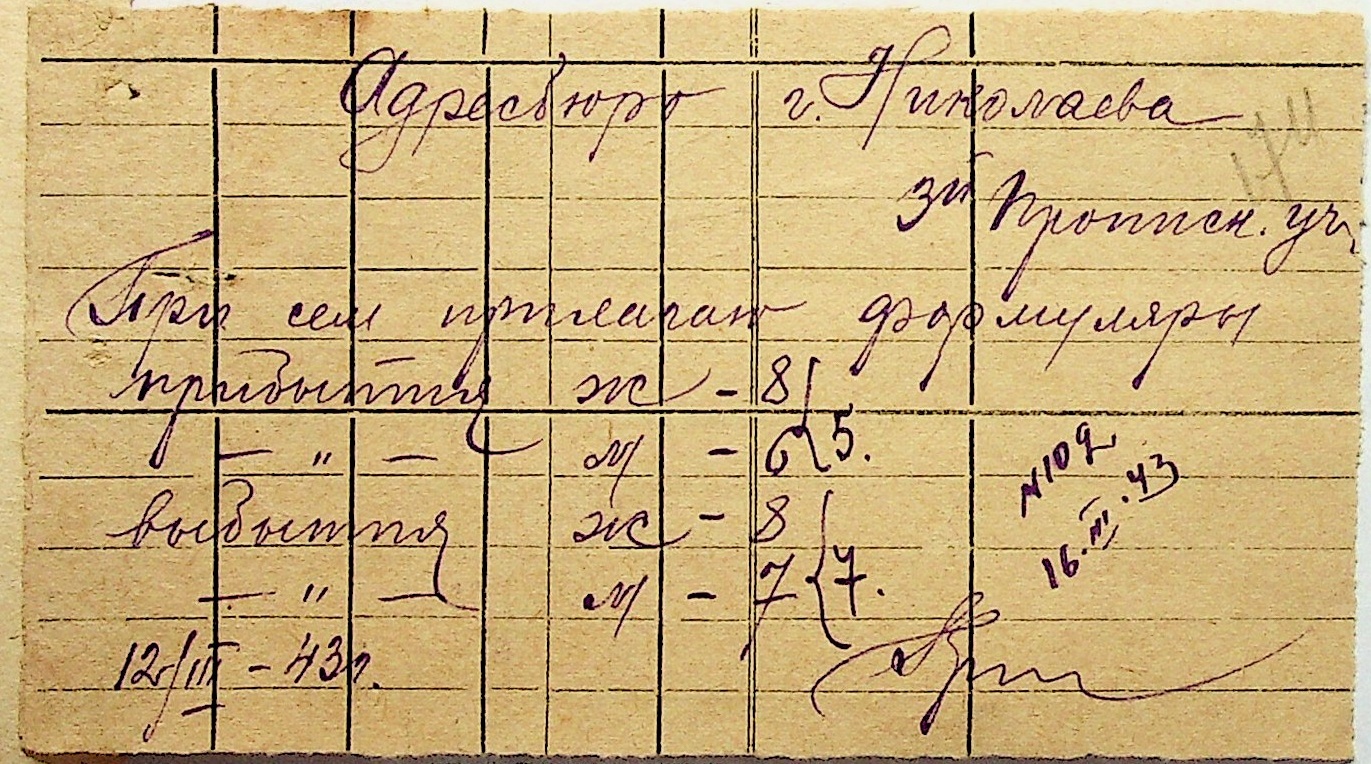 Адресбюро г. Николаева
174
3й Прописн. уч.
При сем прилагаю формуляры
прибытия ж - 8 } 5.
— " — м - 6
выбытия ж - 8 } 7.
— " — м - 7
№ 102
16.III.43
12/III - 43 г.